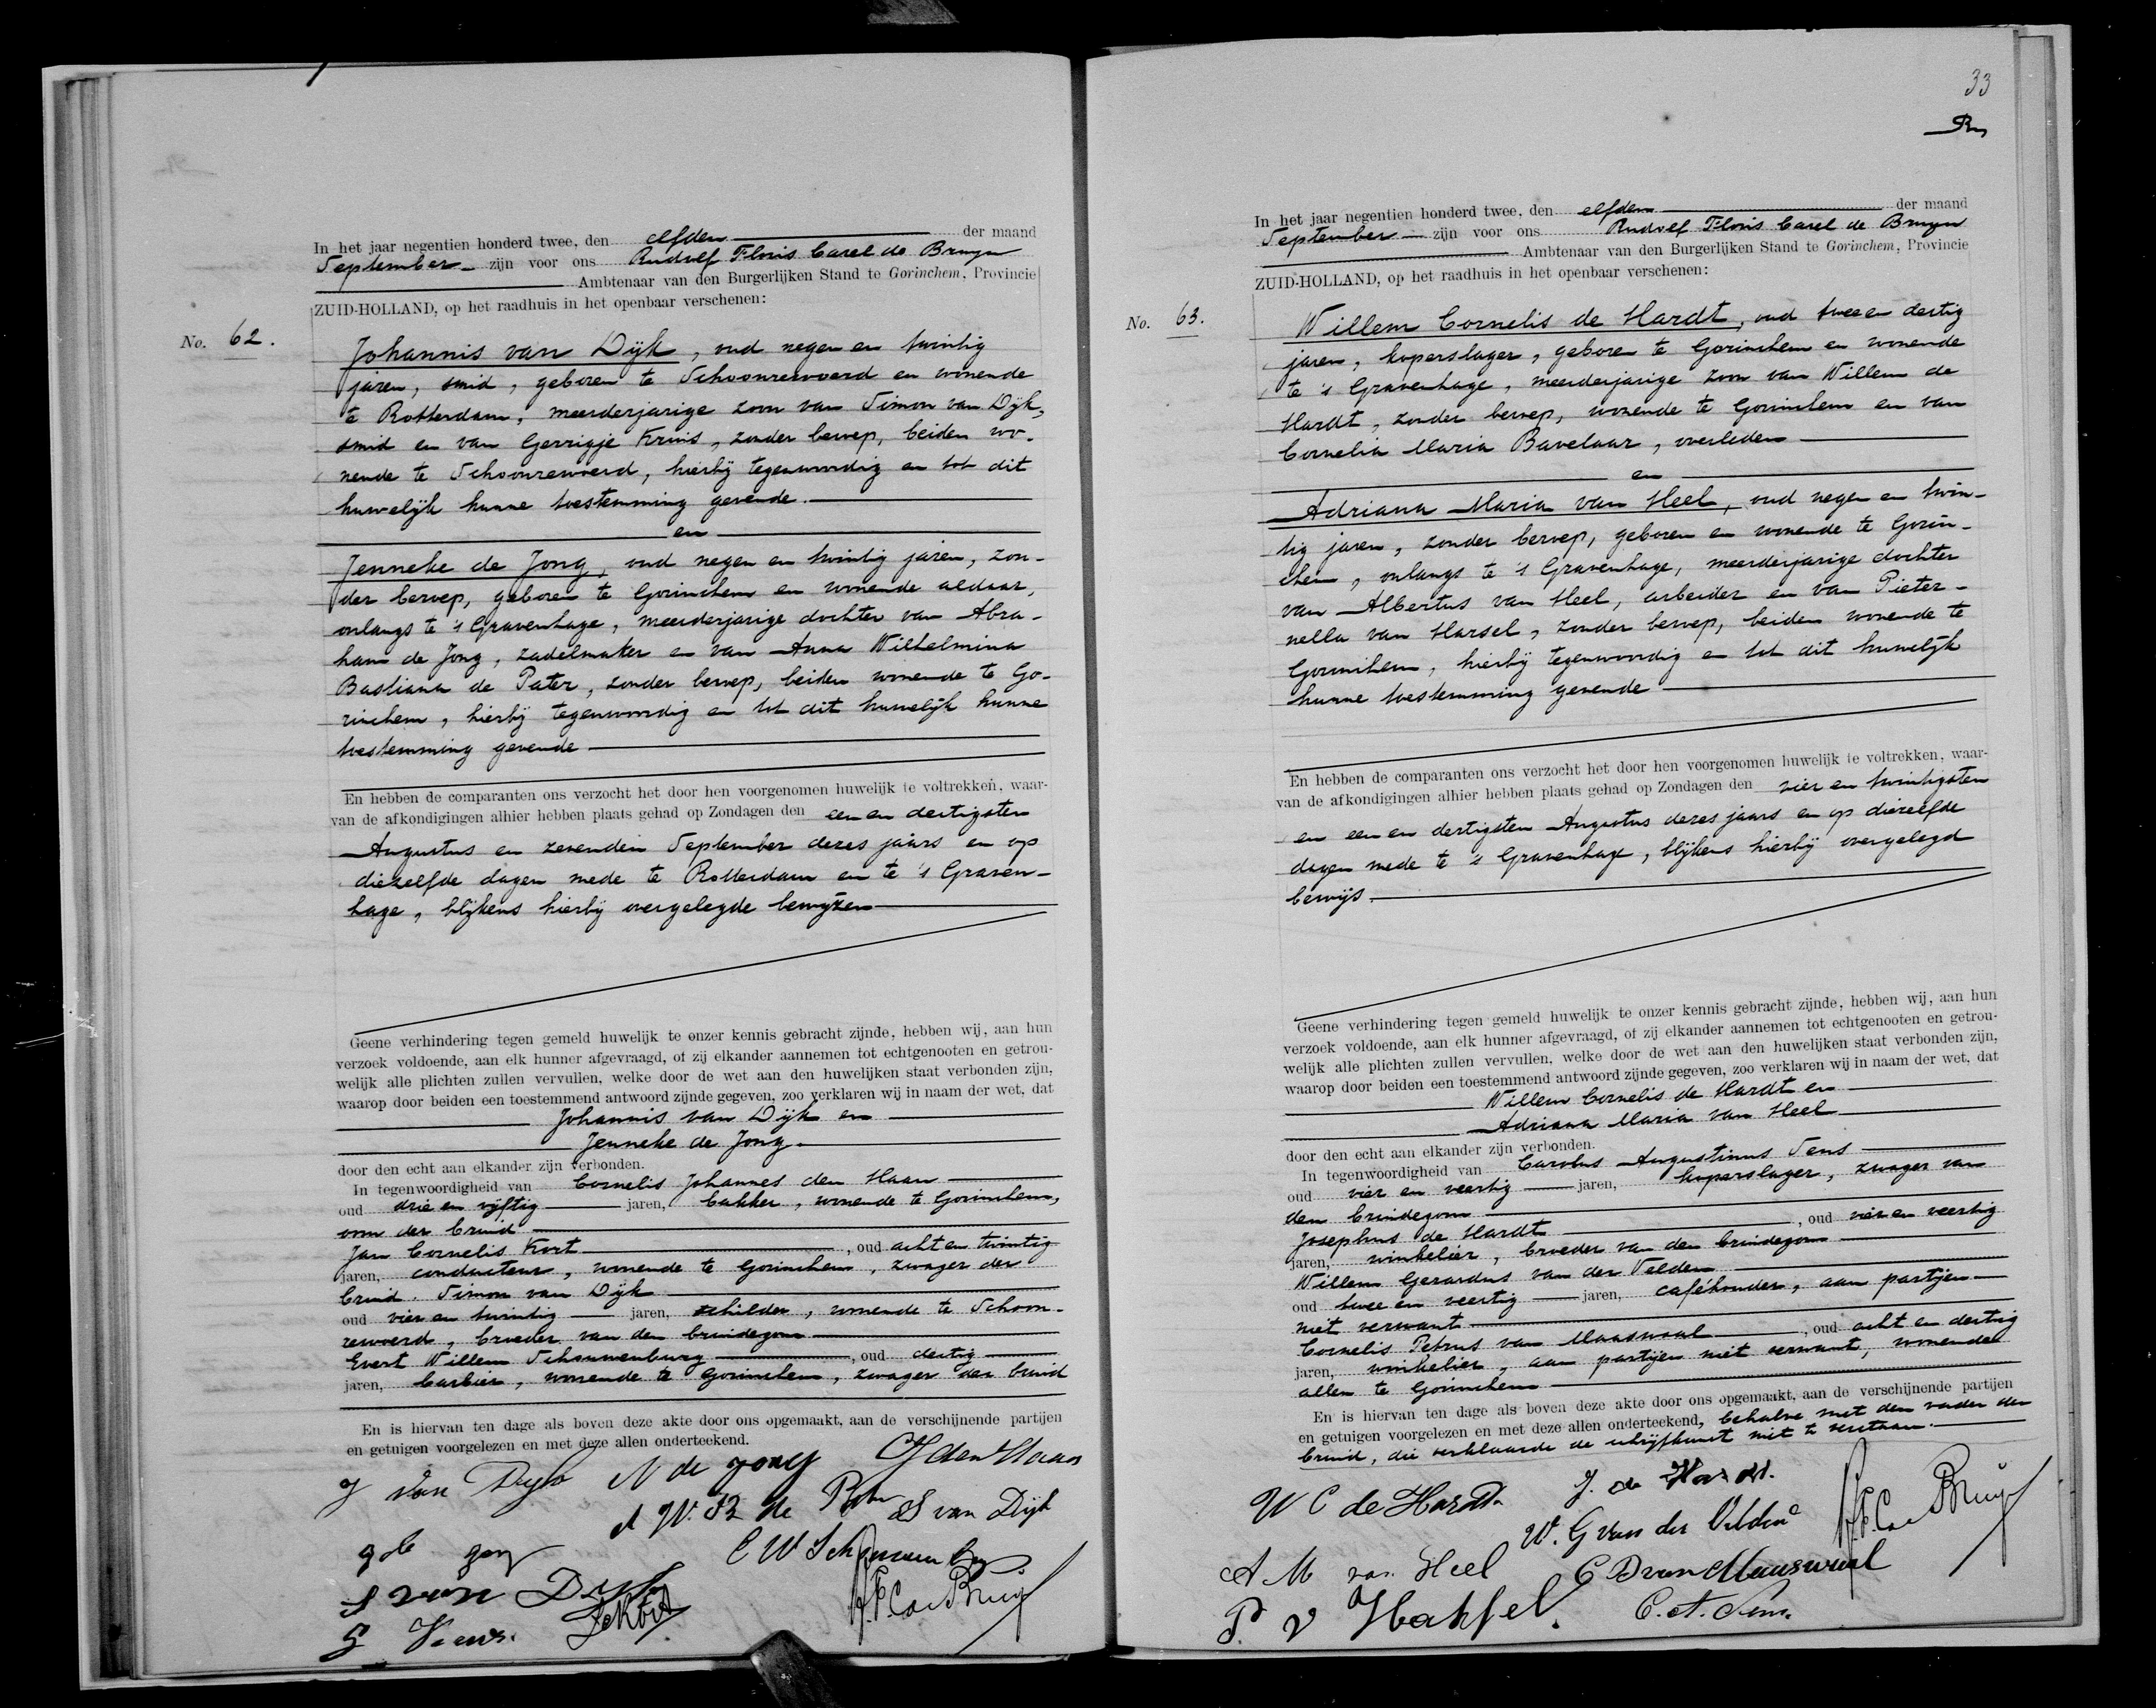 In het jaar negentien honderd twee, den elfden der maand
September zijn voor ons Rudolf Floris Carel de Bruyn
Ambtenaar van den Burgerlijken Stand te Gorinchem, Provincie
ZUID-HOLLAND, op het raadhuis in het openbaar verschenen:
No. 62.
Johannis van Dijk, oud negen en twintig
jaren, smid, geboren te Schoonrewoerd en wonende
te Rotterdam, meerderjarige zoon van Simon van Dijk,
smid en van Gerrigje Kruis, zonder beroep, beiden wo-
nende te Schoonrewoerd, hierbij tegenwoordig en tot dit
huwelijk hunne toestemming gevende.
en
Jenneke de Jong, oud negen en twintig jaren, zon-
der beroep, geboren te Gorinchem en wonende aldaar,
onlangs te 's Gravenhage, meerderjarige dochter van Abra-
ham de Jong, zadelmaker en van Anna Wilhelmina
Bastiana de Pater, zonder beroep, beiden wonende te Go-
rinchem, hierbij tegenwoordig en tot dit huwelijk hunne
toestemming gevende
En hebben de comparanten ons verzocht het door hen voorgenomen huwelijk te voltrekken, waar-
van de afkondigingen alhier hebben plaats gehad op Zondagen den een en dertigsten
Augustus en zevenden September dezes jaars en op
diezelfde dagen mede te Rotterdam en te 's Graven-
hage, blijkens hierbij overgelegde bewijzen
Geene verhindering tegen gemeld huwelijk te onzer kennis gebracht zijnde, hebben wij, aan hun
verzoek voldoende, aan elk hunner afgevraagd, of zij elkander aannemen tot echtgenooten en getrou-
welijk alle plichten zullen vervullen, welke door de wet aan den huwelijken staat verbonden zijn,
waarop door beiden een toestemmend antwoord zijnde gegeven, zoo verklaren wij in naam der wet, dat
Johannis van Dijk en
Jenneke de Jong.
door den echt aan elkander zijn verbonden.
In tegenwoordigheid van Cornelis Johannes den Haan
oud drie en vijftig jaren, bakker, wonende te Gorinchem,
oom der bruid
Jan Cornelis Kort, oud acht en twintig
jaren, conducteur, wonende te Gorinchem, zwager der
bruid. Simon van Dijk
oud vier en twintig jaren, schilder, wonende te Schoon-
rewoerd, broeder van den bruidegom
Evert Willem Schouwenburg, oud dertig
jaren, barbier, wonende te Gorinchem, zwager der bruid
En is hiervan ten dage als boven deze akte door ons opgemaakt, aan de verschijnende partijen
en getuigen voorgelezen en met deze allen onderteekend.
J van Dijk N de Jong CJ den Haan
A W. B de Pater S van Dijk
de Jong
S van Dijk
33
In het jaar negentien honderd twee, den elfden der maand
September zijn voor ons Rudolf Floris Carel de Bruyn
Ambtenaar van den Burgerlijken Stand te Gorinchem, Provincie
ZUID-HOLLAND, op het raadhuis in het openbaar verschenen:
No. 63.
Willem Cornelis de Hardt, oud twee en dertig
jaren, koperslager, geboren te Gorinchem en wonende
te 's Gravenhage, meerderjarige zoon van Willem de
Hardt, zonder beroep, wonende te Gorinchem en van
Cornelia Maria Bavelaar, overleden
en
Adriana Maria van Heel, oud negen en twin-
tig jaren, zonder beroep, geboren en wonende te Gorin-
chem, onlangs te 's Gravenhage, meerderjarige dochter
van Albertus van Heel, arbeider en van Pieter-
nella van Harsel, zonder beroep, beiden wonende te
Gorinchem, hierbij tegenwoordig en tot dit huwelijk
hunne toestemming gevende
En hebben de comparanten ons verzocht het door hen voorgenomen huwelijk te voltrekken, waar-
van de afkondigingen alhier hebben plaats gehad op Zondagen den vier en twintigsten
en een en dertigsten Augustus dezes jaars en op diezelfde
dagen mede te 's Gravenhage, blijkens hierbij overgelegd
bewijs.
Geene verhindering tegen gemeld huwelijk te onzer kennis gebracht zijnde, hebben wij, aan hun
verzoek voldoende, aan elk hunner afgevraagd, of zij elkander aannemen tot echtgenooten en getrou-
welijk alle plichten zullen vervullen, welke door de wet aan den huwelijken staat verbonden zijn,
waarop door beiden een toestemmend antwoord zijnde gegeven, zoo verklaren wij in naam der wet, dat
Willem Cornelis de Hardt en
Adriana Maria van Heel
door den echt aan elkander zijn verbonden.
In tegenwoordigheid van Carolus Augustinus Sens
oud vier en veertig jaren, koperslager, zwager van
den bruidegom
Josephus de Hardt, oud vier en veertig
jaren, winkelier, broeder van den bruidegom
Willem Gerardus van der Velden
oud twee en veertig jaren, caféhouder, aan partijen
niet verwant
Cornelis Petrus van Maaswaal, oud acht en dertig
jaren, winkelier, aan partijen niet verwant, wonende
allen te Gorinchem
En is hiervan ten dage als boven deze akte door ons opgemaakt, aan de verschijnende partijen
en getuigen voorgelezen en met deze allen onderteekend, behalve met den vader der
bruid, die verklaarde de schrijfkunst niet te verstaan.
W C de Hardt J. de Hardt.
W. G van der Velden
A M van Heel C P van Maaswaal
P. v Harsel. C. A. Sens